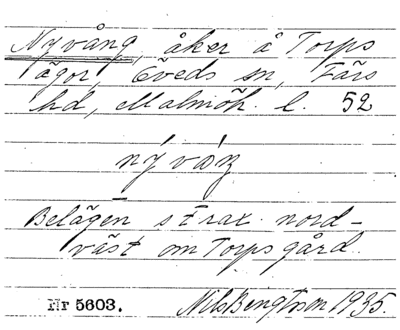 Nyvång, åker å Torps
ägor, Öveds sn, Färs
hd, Malmöh. l. 52
Belägen strax nord-
väst om Torps gård.
Nr 5603. Nils Bengtson 1935.